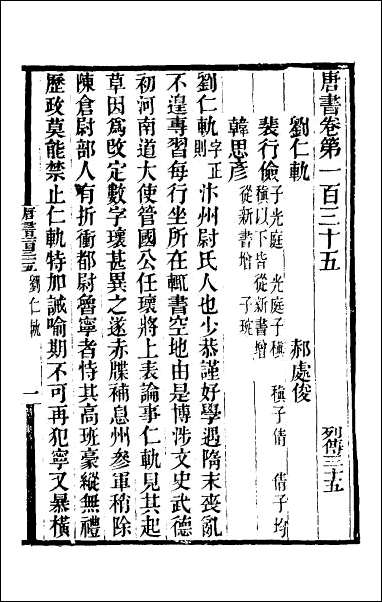 唐書卷第一百三十五 列傳三十五
劉仁軌 郝處俊
裴行儉 子光庭 光庭子稹 稹子倩 倩子均
稹以下皆從新書增
韓思彥 從新書增 子琬
劉仁軌字正則汴州尉氏人也少恭謹好學遇隋末喪亂
不遑專習每行坐所在輒書空地由是博涉文史武德
初河南道大使管國公任瓌將上表論事仁軌見其起
草因爲改定數字瓌甚異之遂赤牒補息州參軍稍除
陳倉尉部人有折衝都尉魯寧者恃其高班豪縱無禮
歷政莫能禁止仁軌特加誡喻期不可再犯寧又暴橫
唐書一百三五 劉仁軌 一